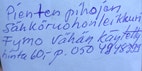 Pienten pihojen
sähköruohonleikkuri
Fymo Vähän käytetty
hinta 60,- p. 050